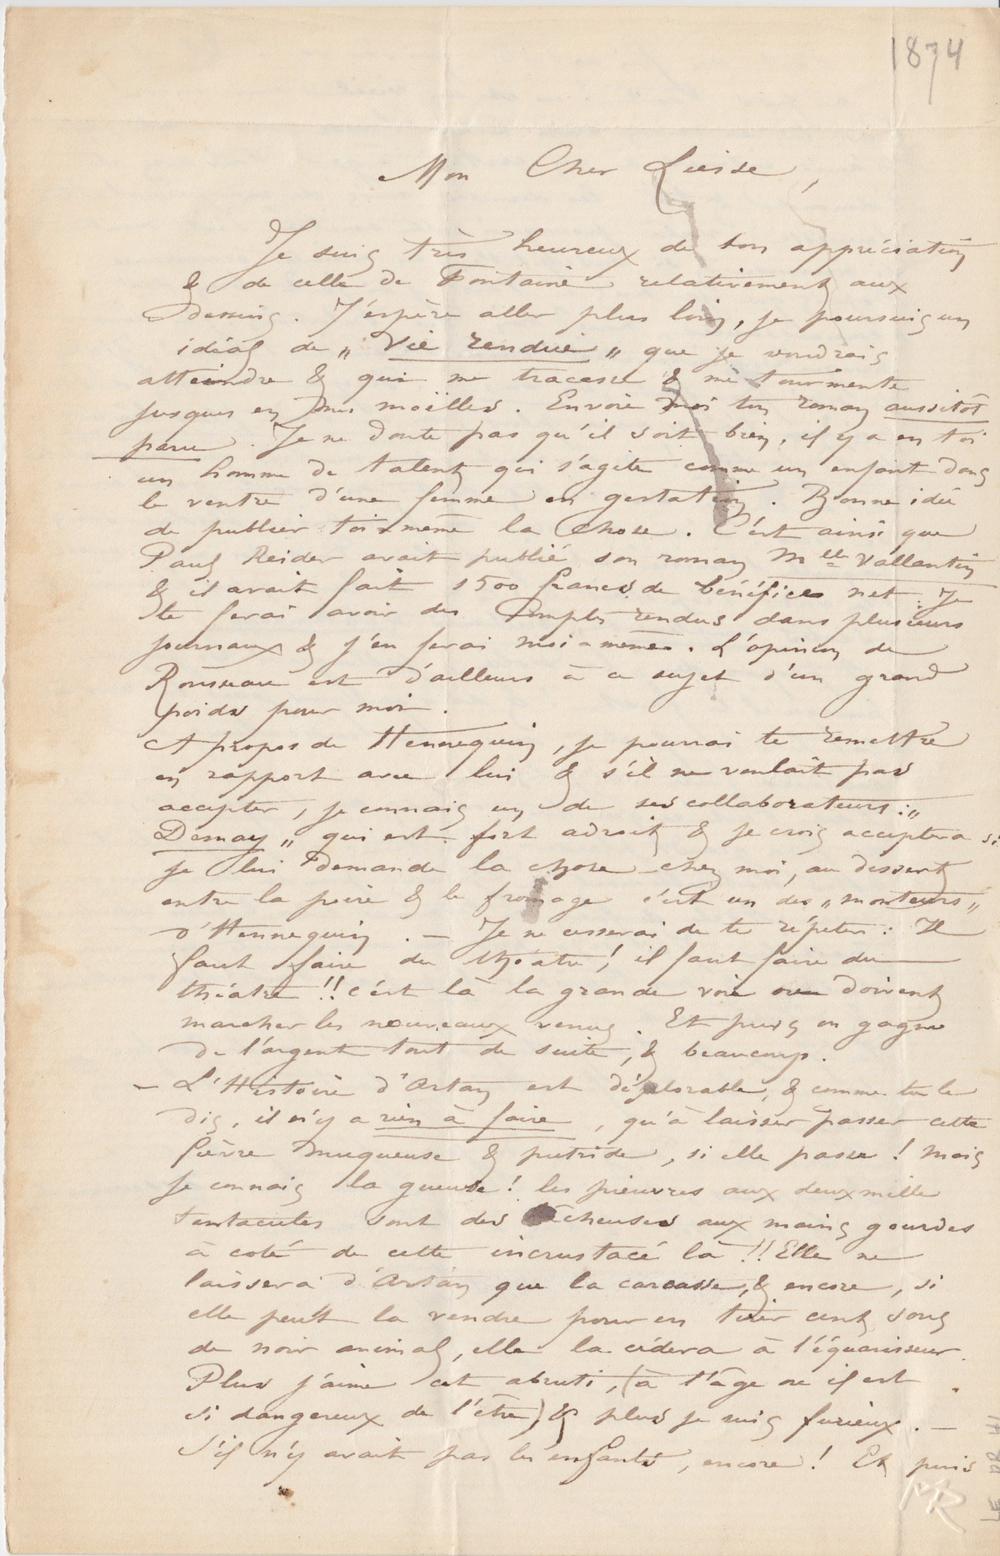 1874
Mon Cher Liesse,
Je suis très heureux de ton appréciation
& de celle de Fontaine relativement aux
dessins. J'espère aller plus loin, je poursuis un
idéal de „ Vie rendue „ que je voudrais
atteindre & qui me tracasse & me tourmente
jusques en mes moëlles. Envoie moi ton roman aussitôt
paru. Je ne doute pas qu'il soit bien, il y a en toi
un homme de talent qui s'agite comme un enfant dans
le ventre d'une femme en gestation. Bonne idée
de publier toi-même la chose. C'est ainsi que
Paul Heider avait publié son roman Melle Vallantin
& il avait fait 1500 francs de bénéfices net. Je
te ferai avoir des comptes rendus dans plusieurs
journaux & j'en ferai moi-même. L'opinion de
Rousseau est d'ailleurs à ce sujet d'un grand
poids pour moi.
A propos de Hennequin, je pourrai te remettre
en rapport avec lui & s'il ne voulait pas
accepter, je connais un de ses collaborateurs : „
Demay „ qui est fort adroit & je crois acceptera si
je lui demande la chose chez moi, au dessert
entre la poire & le fromage c'est un des „ monteurs „
d'Hennequin. — Je ne cesserai de te répéter : Il
faut faire du théâtre ! il faut faire du
théâtre !! c'est là la grande voie où doivent
marcher les nouveaux venus. Et puis on gagne
de l'argent tout de suite, & beaucoup.
— L'Histoire d'Artan est déplorable, & comme tu le
dis, il n'y a rien à faire, qu'à laisser passer cette
fièvre muqueuse & putride, si elle passe ! Mais
je connais la gueuse ! les pieuvres aux deux mille
tentacules sont des lâcheuses aux mains gourdes
à coté de cette incrustacé là !! Elle ne
laissera d'Artan que la carcasse, & encore, si
elle peut la vendre pour en tirer cent sous
de noir animal, elle la cédera à l'équarisseur.
Plus j'aime cet abruti, (à l'âge où il est
si dangereux de l'être) & plus je suis furieux. —
S'il n'y avait pas les enfants, encore ! Et puis
MR